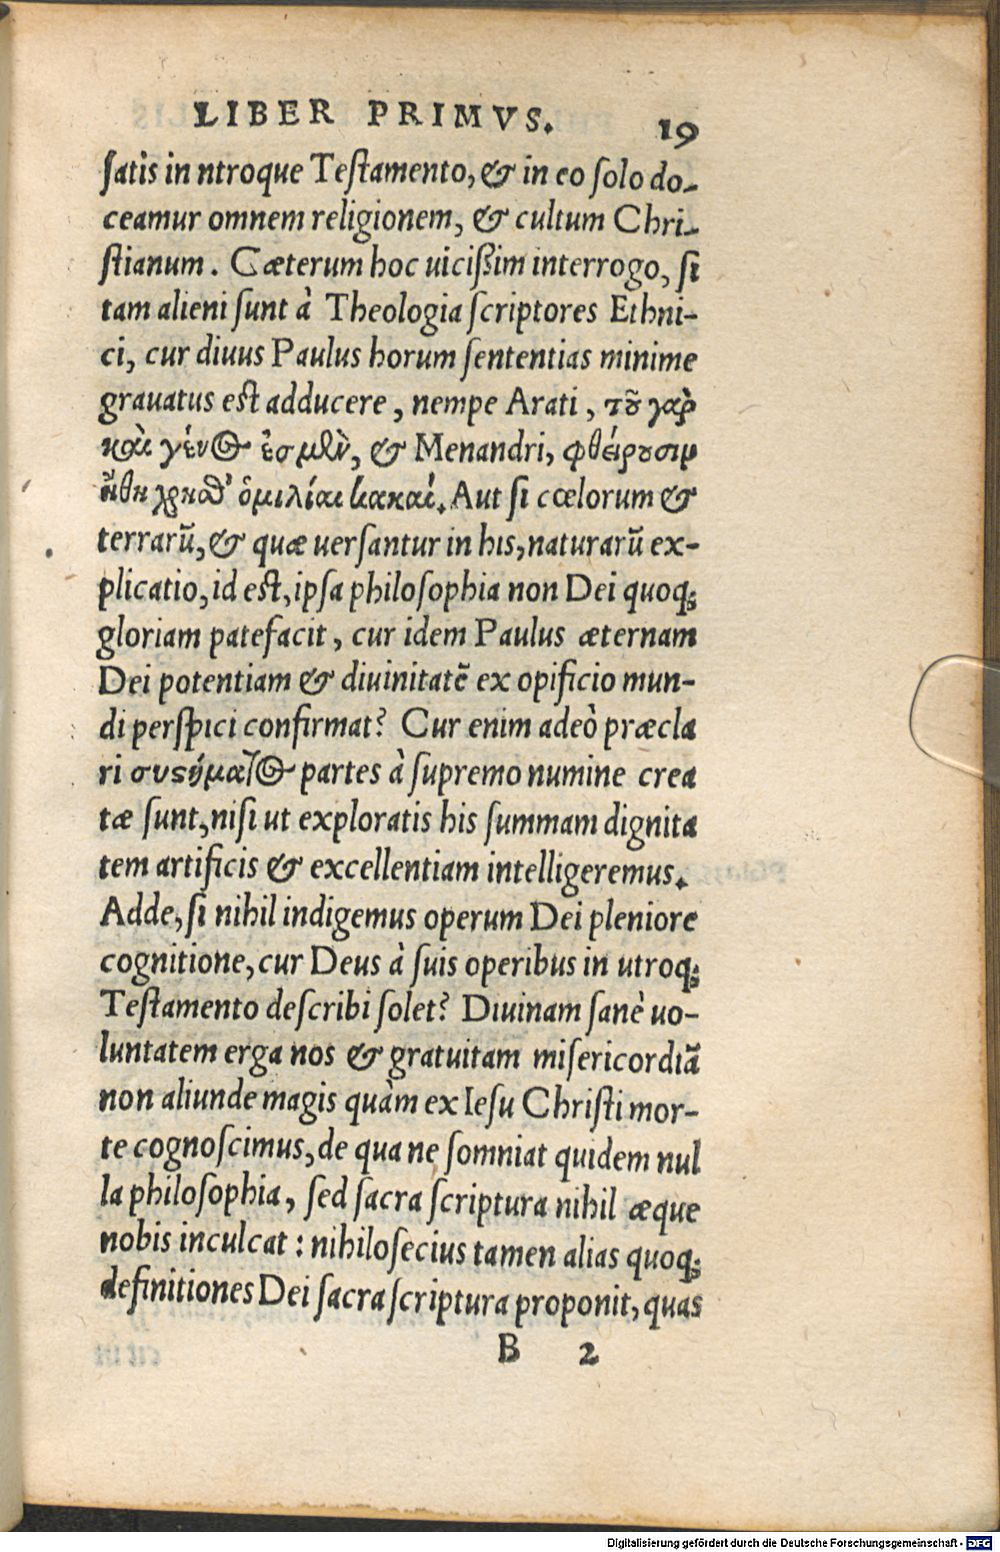 LIBER PRIMVS. 19
ſatis in ntroque Teſtamento, & in eo ſolo do-
ceamur omnem religionem, & cultum Chri-
ſtianum. Cæterum hoc uiciſſim interrogo, ſi
tam alieni ſunt à Theologia ſcriptores Ethni-
ci, cur diuus Paulus horum ſententias minime
grauatus eſt adducere, nempe Arati, τοῦ γὰρ
καὶ γένος ἐσμὲν, & Menandri, φθείρουσιν
ἤθη χρησθ' ὁμιλίαι κακαί. Aut ſi cœlorum &
terrarū, & quæ uerſantur in his, naturarū ex-
plicatio, id eſt, ipſa philoſophia non Dei quoq;
gloriam patefacit, cur idem Paulus æternam
Dei potentiam & diuinitatē ex opificio mun-
di perſpici confirmat? Cur enim adeò præcla
ri συστήματος partes à ſupremo numine crea
tæ ſunt, niſi ut exploratis his ſummam dignita
tem artificis & excellentiam intelligeremus.
Adde, ſi nihil indigemus operum Dei pleniore
cognitione, cur Deus à ſuis operibus in utroq;
Teſtamento deſcribi ſolet? Diuinam ſanè uo-
luntatem erga nos & gratuitam miſericordiā
non aliunde magis quàm ex Ieſu Chriſti mor-
te cognoſcimus, de qua ne ſomniat quidem nul
la philoſophia, ſed ſacra ſcriptura nihil æque
nobis inculcat: nihiloſecius tamen alias quoq;
definitiones Dei ſacra ſcriptura proponit, quas
B 2
Digitalisierung gefördert durch die Deutsche Forschungsgemeinschaft - DFG